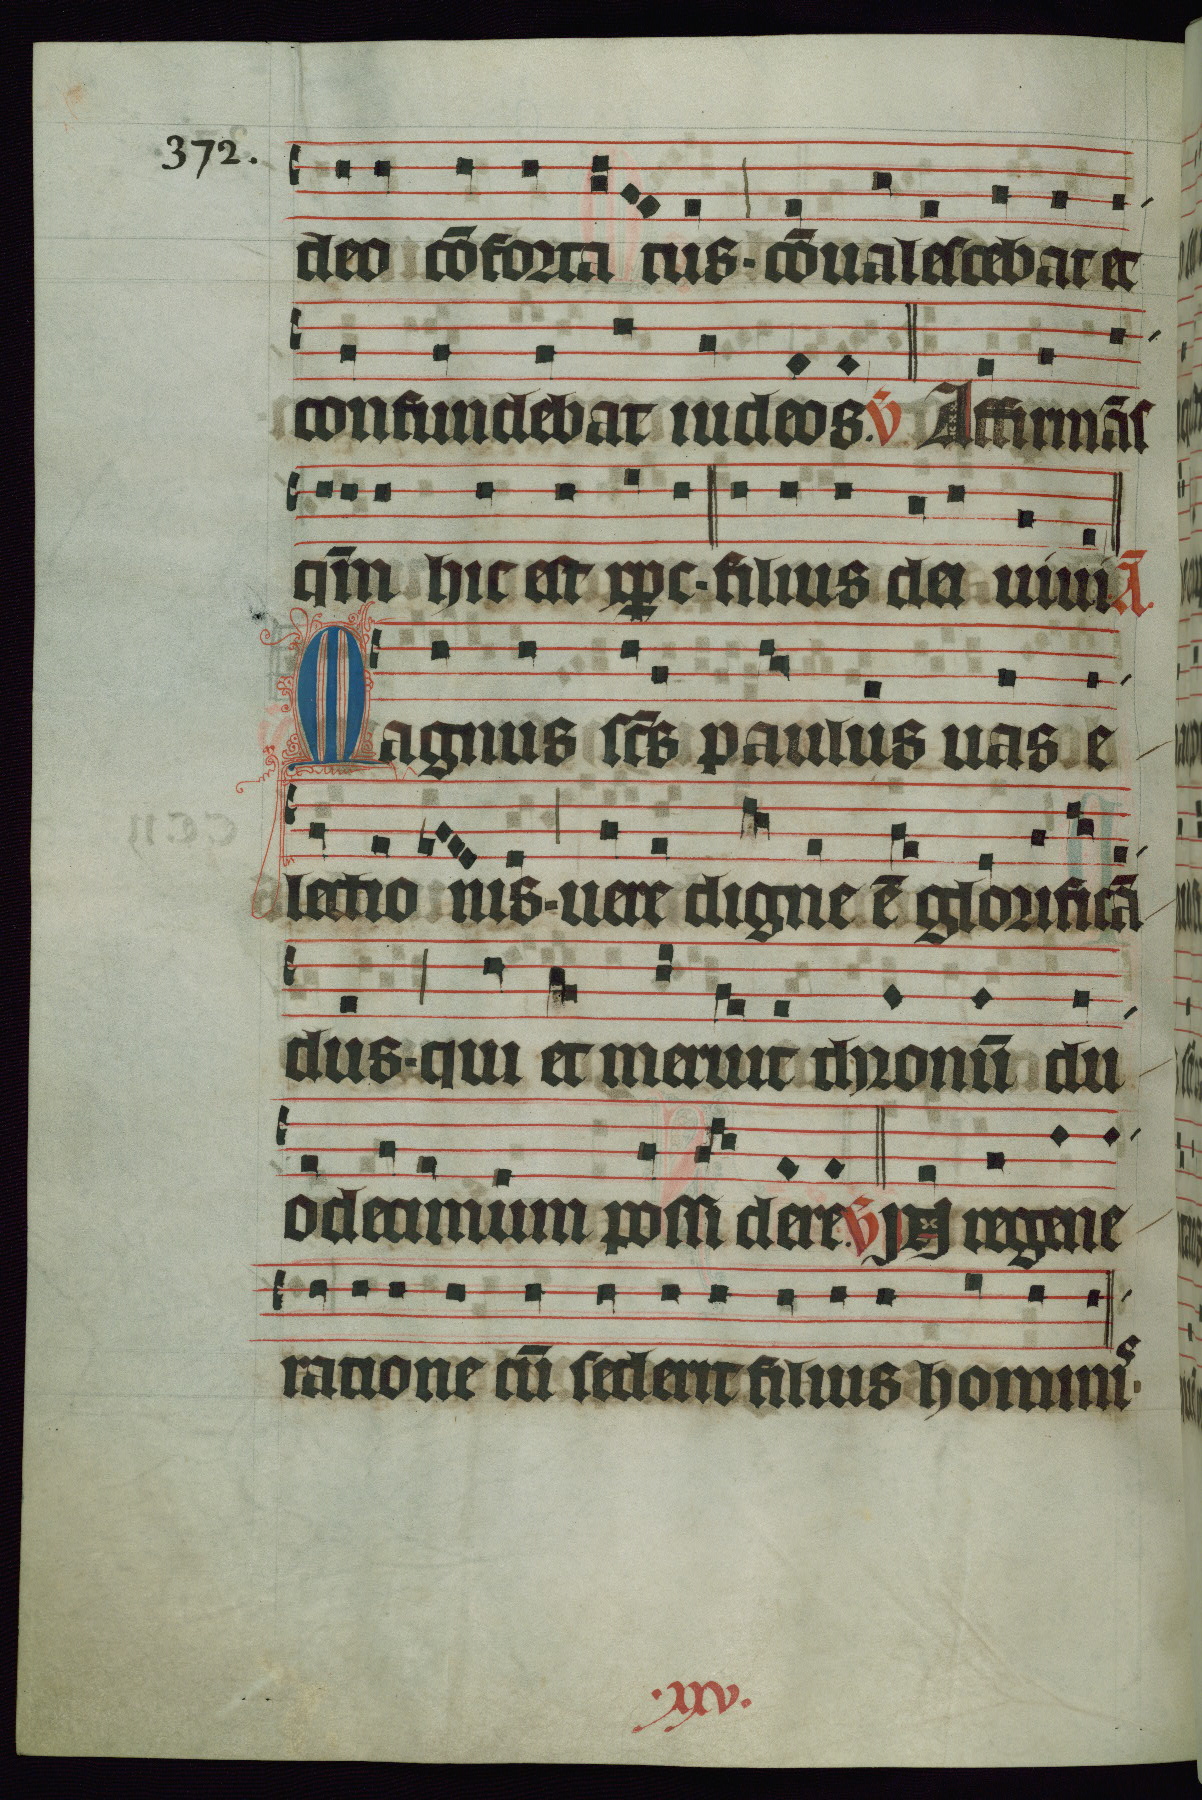 372.
deo cōforta tus · cōualescebat et
confundebat iudeos. v̄ Affirmās
qm̄ hic est xp̄c · filius dei uiui Ā
Magnus sc̄s paulus uas e
lectio nis · uere digne ē glorificā
dus · qui et meruit thronū du
odecimum possi dere. v̄ In regene
ratione cū sederit filius hominis ·
· xxv ·